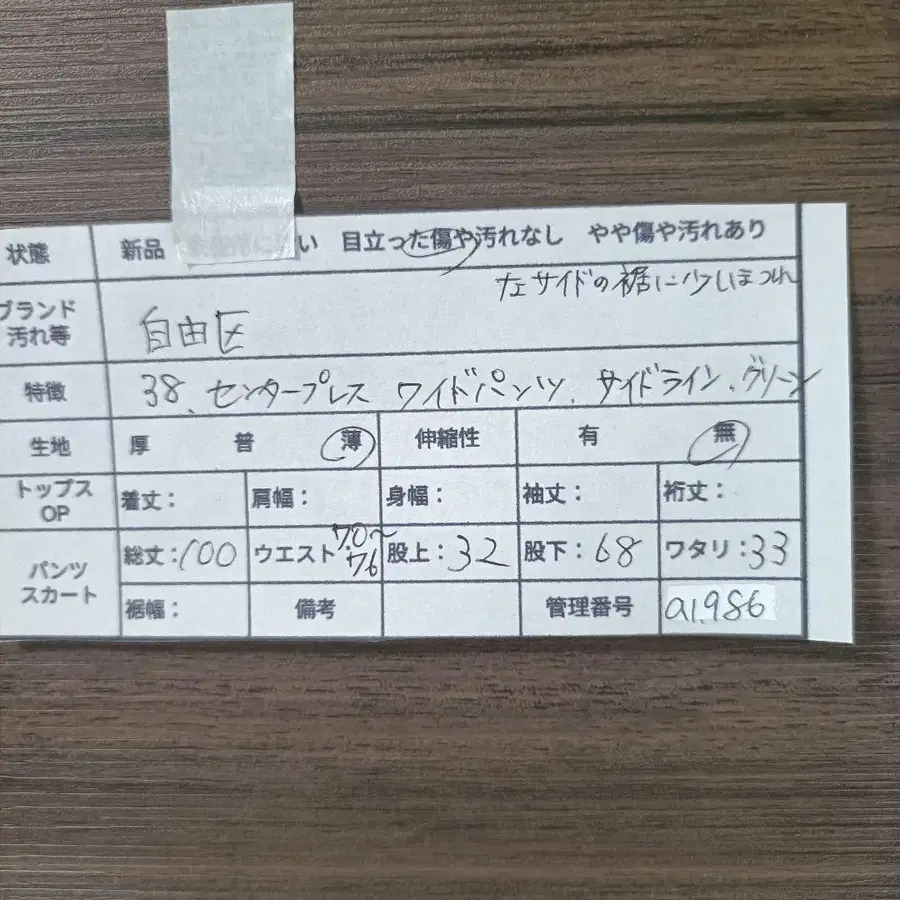 状態 新品 い 目立った傷や汚れなし やや傷や汚れあり
左サイドの裾に少しほつれ
ブランド
汚れ等 自由区
特徴 38、センタープレス ワイドパンツ、サイドライン、グリーン
生地 厚 普 薄 伸縮性 有 無
トップス
OP 着丈: 肩幅: 身幅: 袖丈: 裄丈:
パンツ
スカート 総丈:100 ウエスト:70~76 股上:32 股下:68 ワタリ:33
裾幅: 備考 管理番号 a1.986